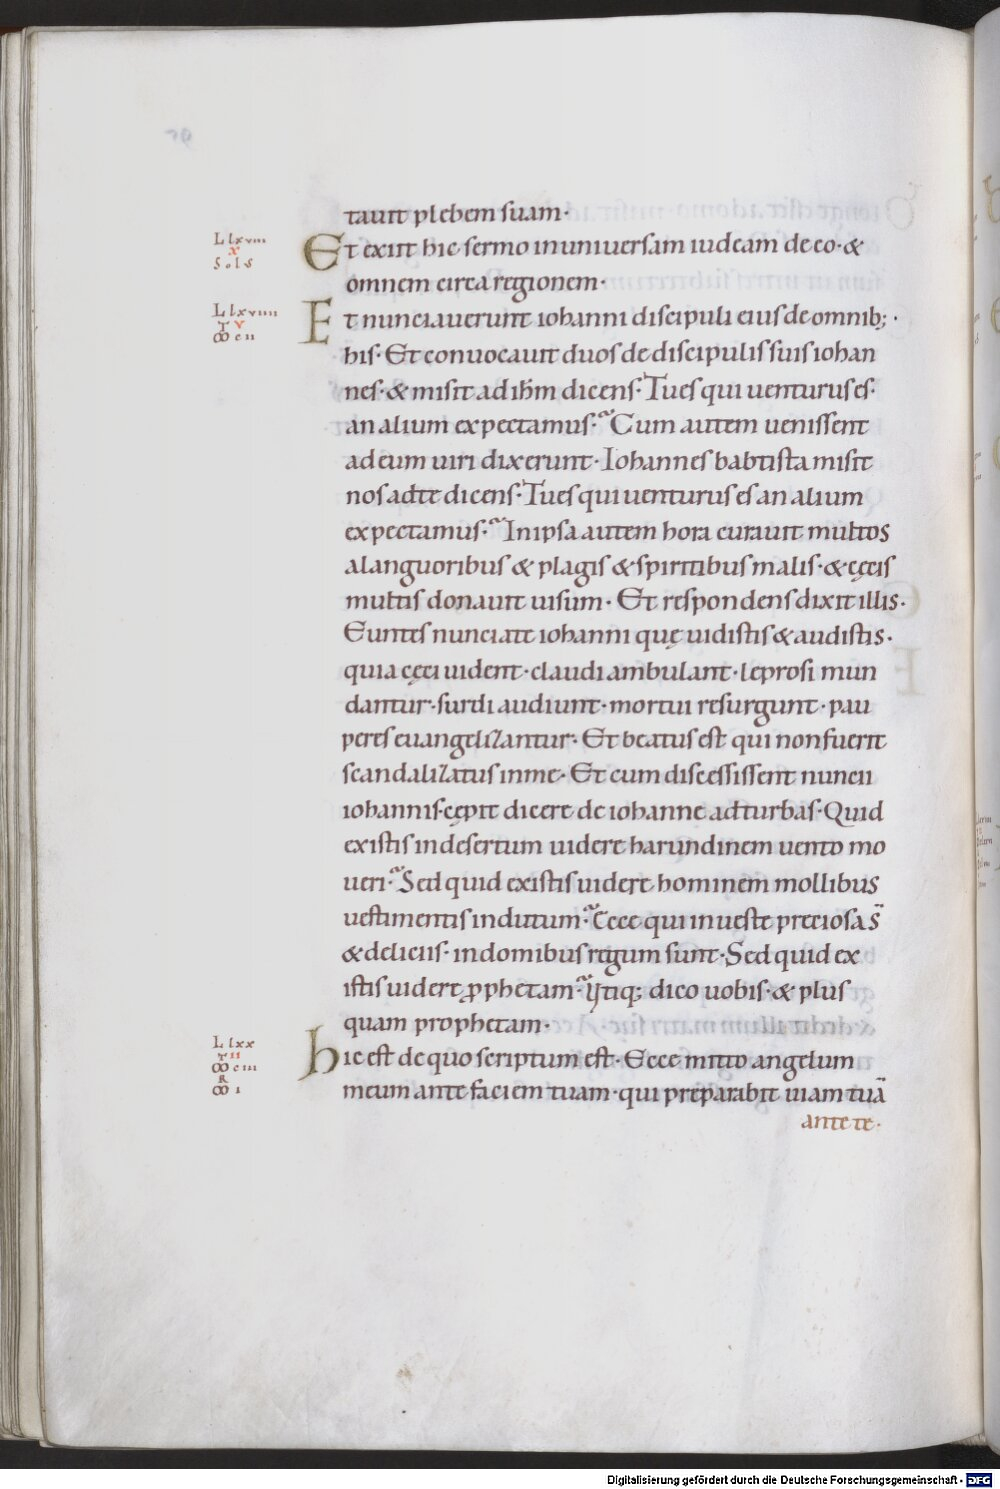 tauit plebem suam·
L lxviii
x
Sols
Et exiit hic sermo inuniuersam iudeam de eo·&
omnem circa regionem·
L lxviiii
T v
ꝏ cii
Et nunciauerunt iohanni discipuli eius de omnib;·
his· Et conuocauit duos de discipulis suis iohan
nes·& misit ad ihm̄ dicens· Tu es qui uenturus es·
an alium expectamus· Cum autem uenissent
ad eum uiri dixerunt· Iohannes babtista misit
nos ad te dicens· Tu es qui uenturus es an alium
expectamus· In ipsa autem hora curauit multos
a languoribus & plagis & spiritibus malis·& cęcis
multis donauit uisum· Et respondens dixit illis·
Euntes nunciate iohanni quę uidistis & audistis·
quia cęci uident· claudi ambulant· leprosi mun
dantur· surdi audiunt· mortui resurgunt· pau
peres euangelizantur· Et beatus est qui non fuerit
scandalizatus in me· Et cum discessissent nuncii
iohannis· cępit dicere de iohanne ad turbas· Quid
existis in desertum uidere harundinem uento mo
ueri· Sed quid existis uidere hominem mollibus
uestimentis indutum· Ecce qui in ueste preciosa s̄
& deliciis· in domibus regum sunt· Sed quid ex
istis uidere ꝓphetam· Utiq; dico uobis·& plus
quam prophetam·
L lxx
T ii
ꝏ ciii
R
ꝏ i
hic est de quo scriptum est· Ecce mitto angelum
meum ante faciem tuam· qui preparabit uiam tuā
ante te·
Digitalisierung gefördert durch die Deutsche Forschungsgemeinschaft - DFG